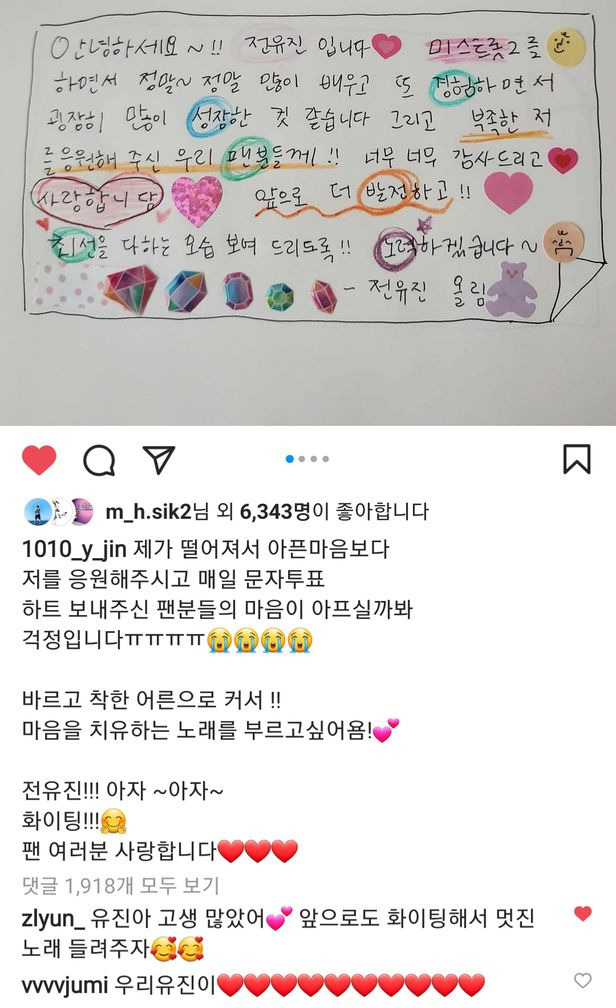 안녕하세요~!! 전유진입니다 미스트롯2를
하면서 정말~ 정말 많이 배우고 또 경험하면서
굉장히 많이 성장한 것 같습니다 그리고 부족한 저
를 응원해 주신 우리 팬분들께!! 너무 너무 감사드리고
사랑합니당 앞으로 더 발전하고!!
최선을 다하는 모습 보여 드리도록!! 노력하겠습니다~
- 전유진 올림
m_h.sik2님 외 6,343명이 좋아합니다
1010_y_jin 제가 떨어져서 아픈마음보다
저를 응원해주시고 매일 문자투표
하트 보내주신 팬분들의 마음이 아프실까봐
걱정입니다ㅠㅠㅠㅠ😭😭😭😭
바르고 착한 어른으로 커서 !!
마음을 치유하는 노래를 부르고싶어욤!💕
전유진!!! 아자 ~아자~
화이팅!!!🤗
팬 여러분 사랑합니다❤️❤️❤️
댓글 1,918개 모두 보기
zlyun_ 유진아 고생 많았어💕 앞으로도 화이팅해서 멋진
노래 들려주자🥰🥰
vvvvjumi 우리유진이❤️❤️❤️❤️❤️❤️❤️❤️❤️❤️